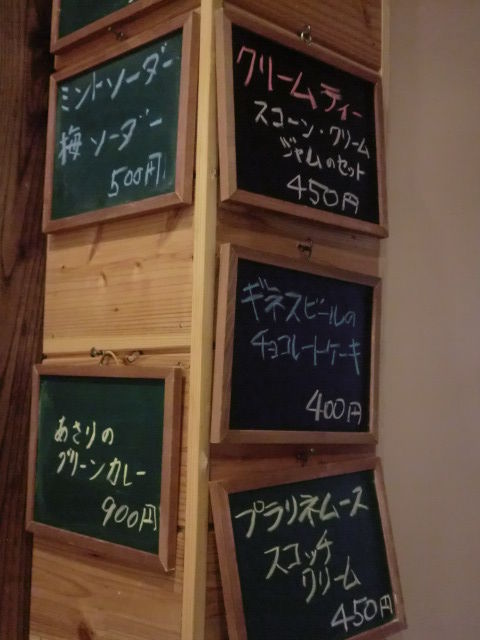 ミントソーダー
梅ソーダー
500円
あさりの
グリーンカレー
900円
クリームティー
スコーン・クリーム
ジャムのセット
450円
ギネスビールの
チョコレートケーキ
400円
プラリネムース
スコッチ
クリーム
450円